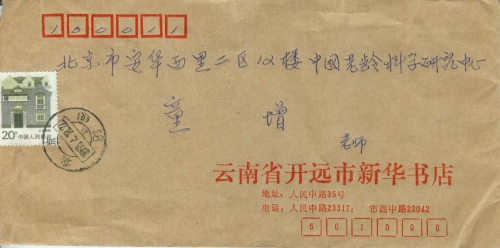 100011
北京市安华西里二区以楼中国老龄科学研究中心
童增
老师
20分 中国人民邮政
云南省开远市新华书店
地址：人民中路35号
电话：人民中路23317； 市西中路23042
661000